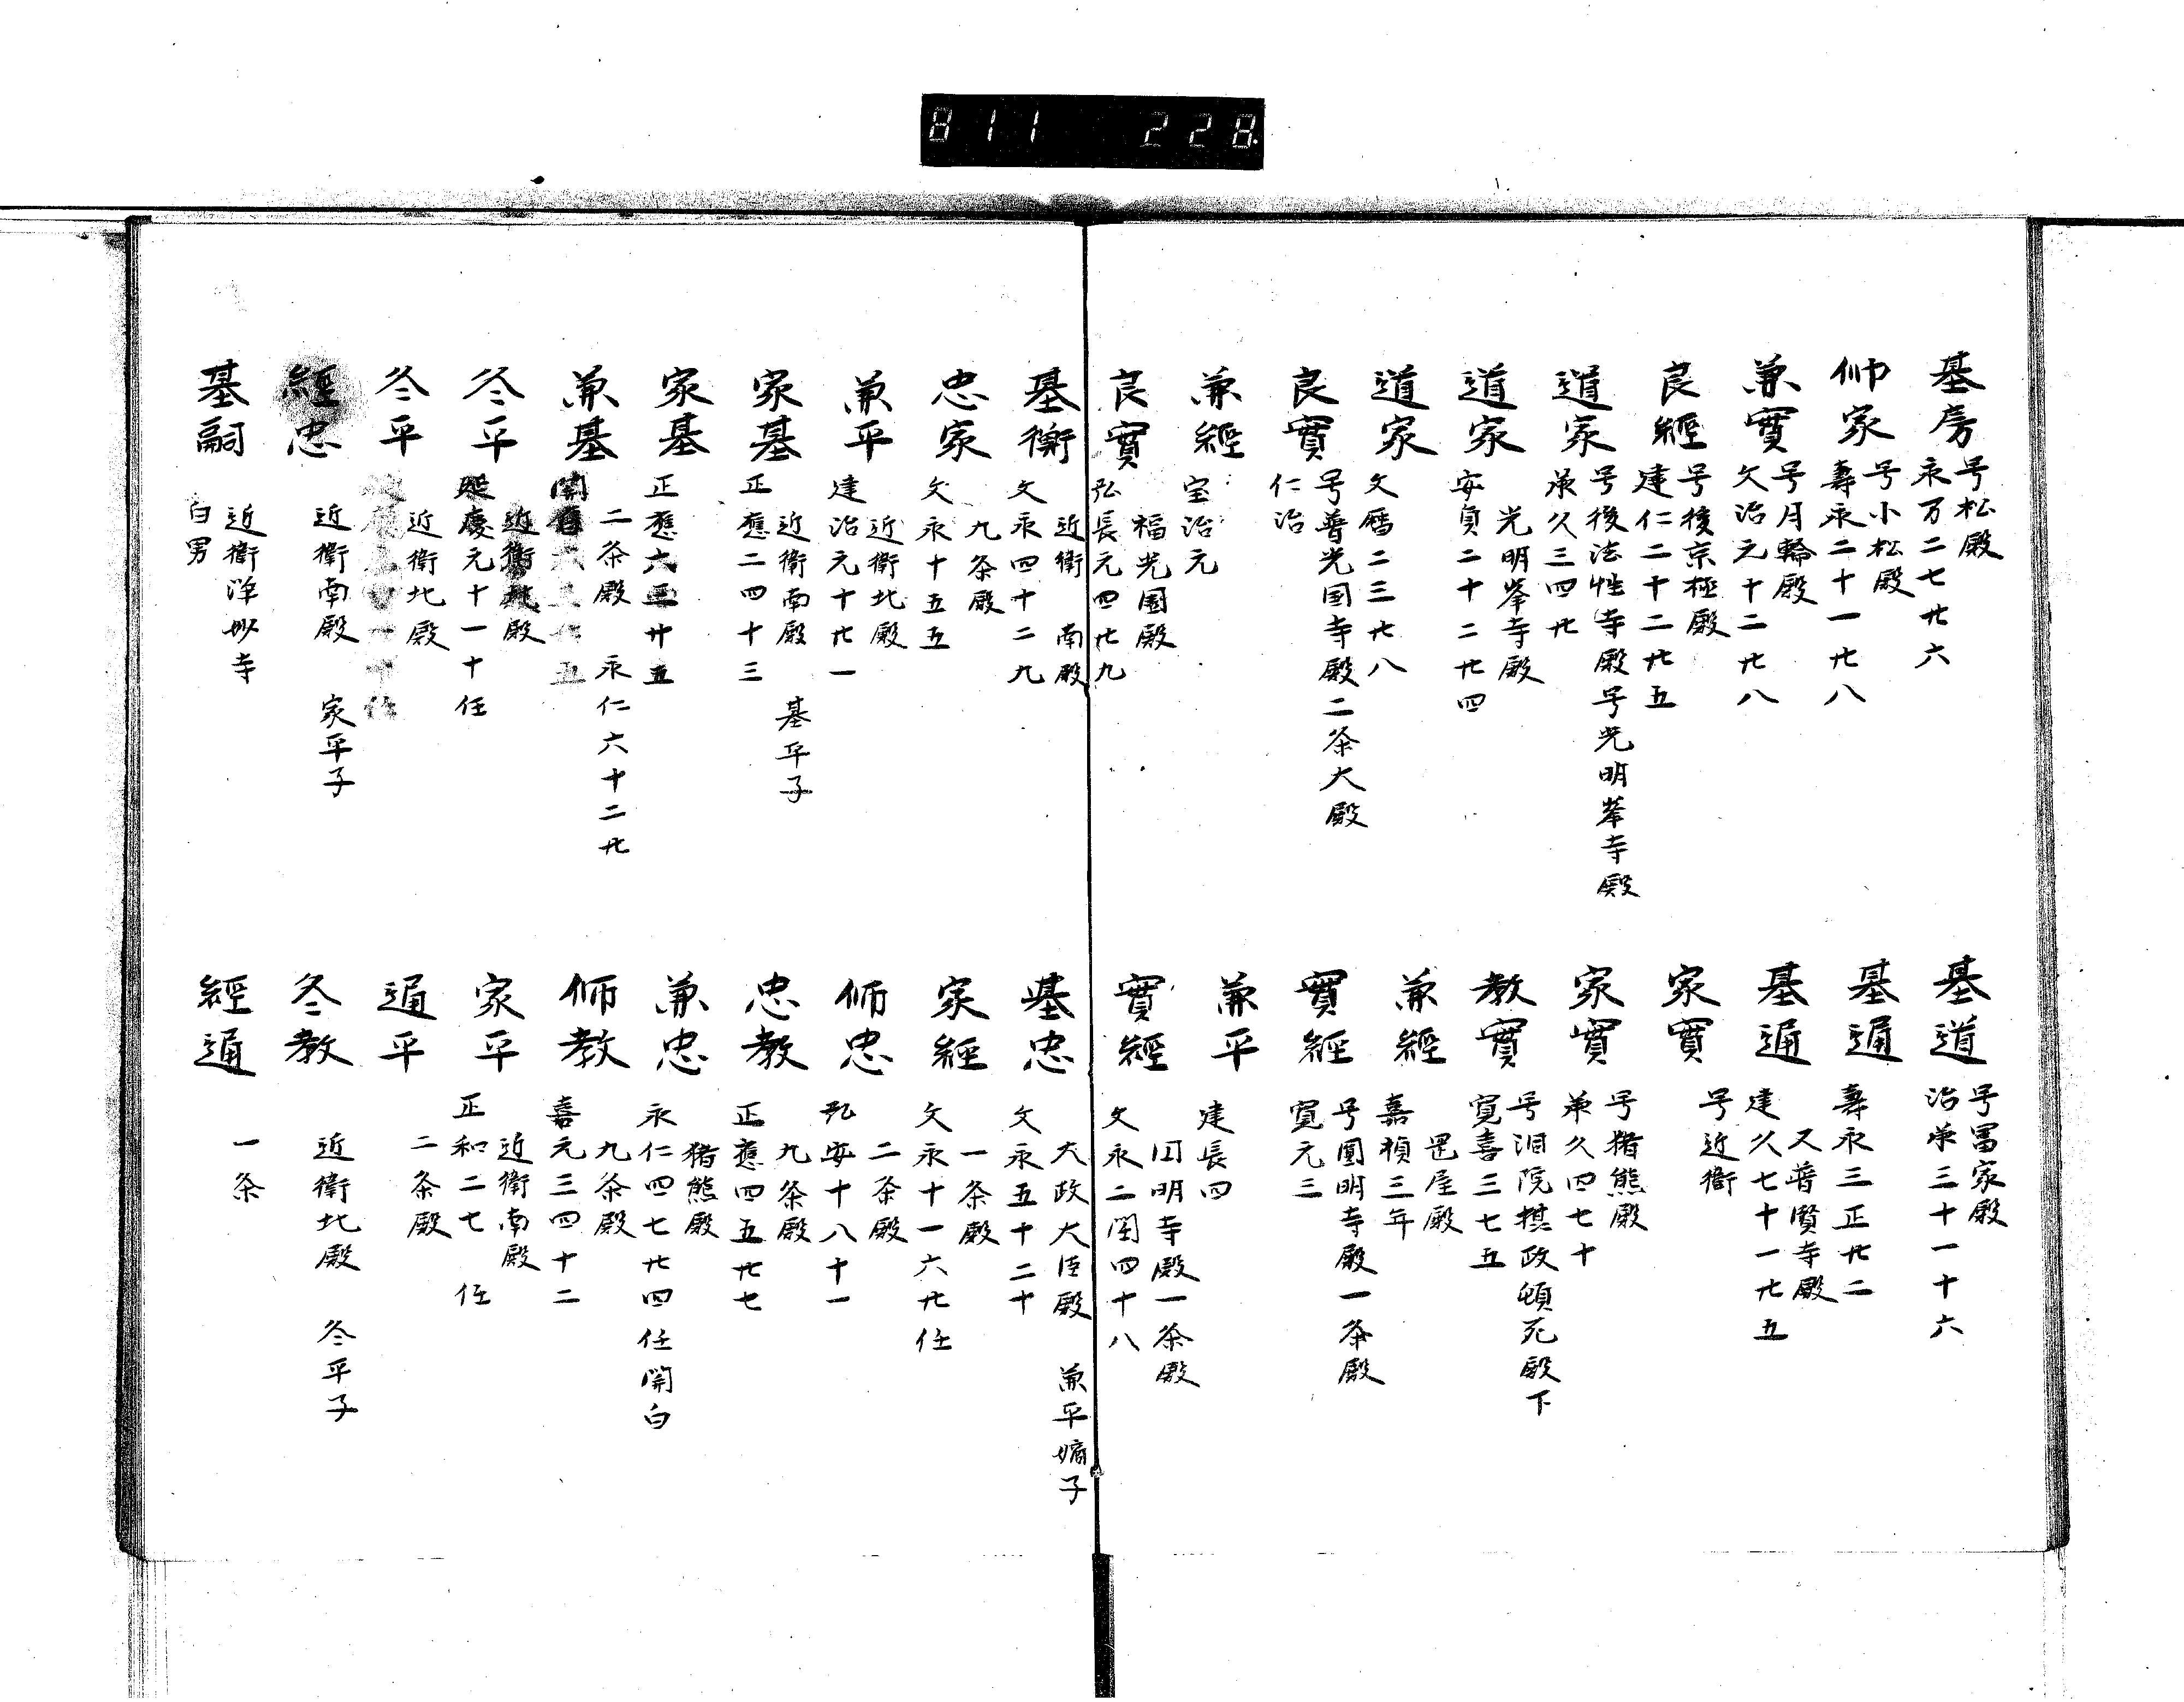 811 228
基房
号松殿
永万二七廿六
師家
号小松殿
壽永二十一廿八
兼實
号月輪殿
文治元十二廿八
良經
号後京極殿
建仁二十二廿五
道家
号後法性寺殿 号光明峯寺殿
承久三四廿
道家
光明峯寺殿
安貞二十二廿四
道家
文暦二三廿八
良實
号普光国寺殿二条大殿
仁治
兼經
宝治元
良實
福光園殿
弘長元四廿九
基道
号冨家殿
治承三十一十六
基通
壽永三正廿二
基通
又普賢寺殿
建久七十一廿五
家實
号近衞
家實
号猪熊殿
承久四七十
教實
号洞院摂政頓死殿下
寛喜三七五
兼經
罡屋殿
嘉禎三年
實經
号圓明寺殿一条殿
寛元三
兼平
建長四
實經
円明寺殿一条殿
文永二閏四十八
基衡
近衞 南殿
文永四十二九
忠家
九条殿
文永十五五
兼平
近衞北殿
建治元十廿一
家基
近衞南殿 基平子
正應二四十三
家基
正應六正廿五
兼基
二条殿 永仁六十二廿
冬平
近衞北殿
延慶元十一十任
冬平
近衞北殿
經忠
近衞南殿 家平子
基嗣
近衞浄妙寺
白男
基忠
大政大臣殿 兼平嫡子
文永五十二十
家經
一条殿
文永十一六廿任
師忠
二条殿
弘安十八十一
忠教
九条殿
正應四五廿七
兼忠
猪熊殿
永仁四七廿四任関白
師教
九条殿
嘉元三四十二
家平
近衞南殿
正和二七 任
道平
二条殿
冬教
近衞北殿 冬平子
經通
一条